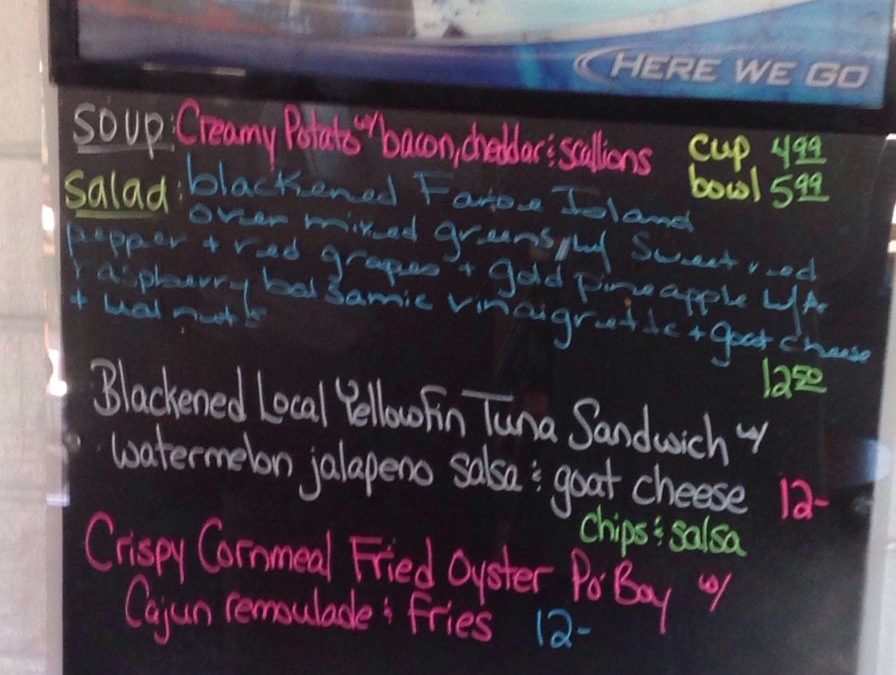 HERE WE GO
SOUP: Creamy Potato w/ bacon, cheddar & scallions cup 4.99
bowl 5.99
Salad: blackened Faroe Island
over mixed greens, w/ Sweet red
pepper + red grapes + gold pineapple w/ a
raspberry balsamic vinaigrette + goat cheese
+ walnuts
12.50
Blackened Local Yellowfin Tuna Sandwich w/
watermelon jalapeno salsa & goat cheese 12-
chips & salsa
Crispy Cornmeal Fried Oyster Po' Boy w/
Cajun remoulade & Fries 12-